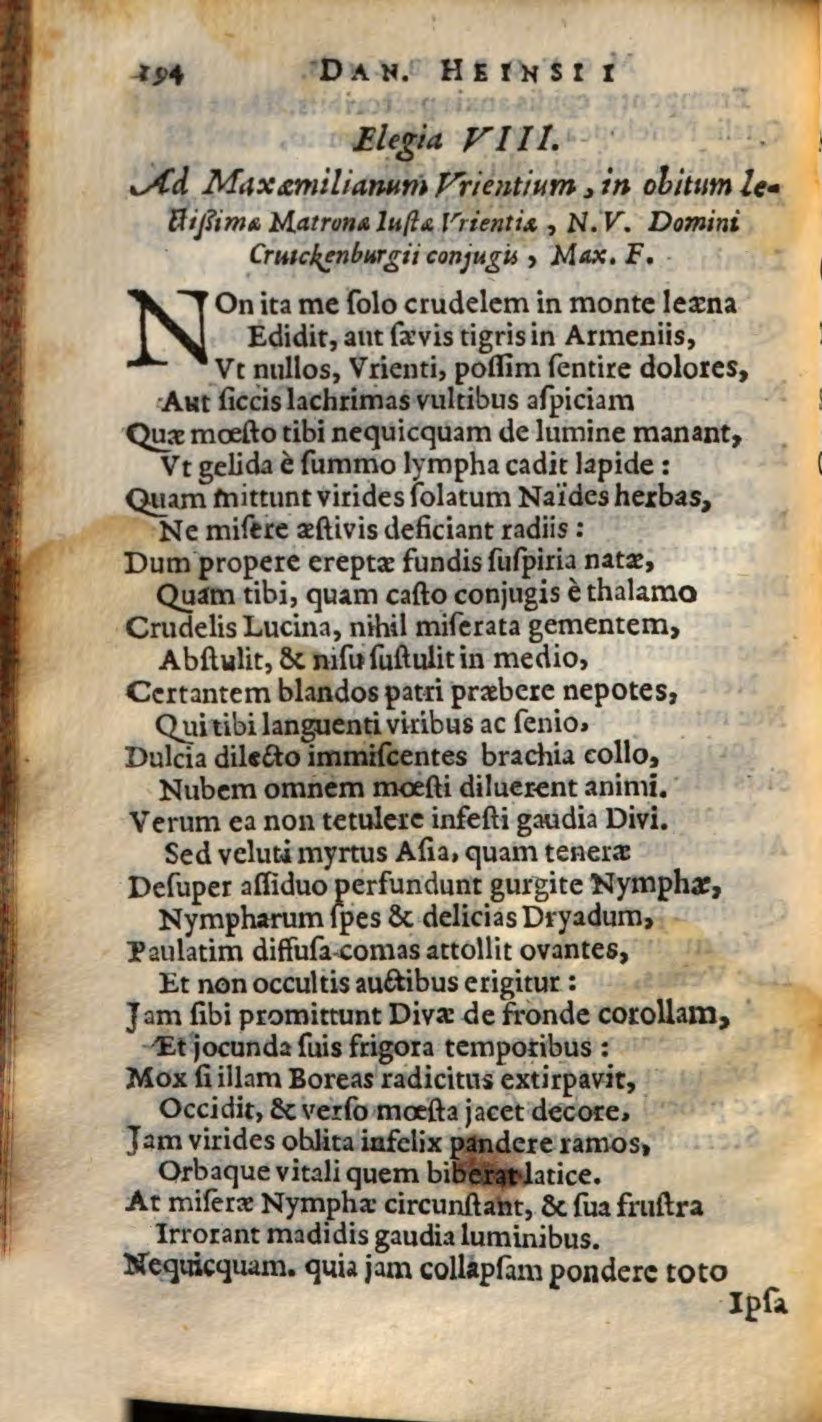 194 DAN. HEINSII
Elegia VIII.
Ad Maxæmilianum Vrientium, in obitum le-
ctiſſimæ Matronæ Iuſtæ Vrientiæ, N. V. Domini
Cruickenburgii conjugis, Max. F.
NOn ita me ſolo crudelem in monte leæna
Edidit, aut ſævis tigris in Armeniis,
Vt nullos, Vrienti, poſſim ſentire dolores,
Aut ſiccis lachrimas vultibus aſpiciam
Quæ mœſto tibi nequicquam de lumine manant,
Vt gelida è ſummo lympha cadit lapide :
Quam mittunt virides ſolatum Naïdes herbas,
Ne miſere æſtivis deficiant radiis :
Dum propere ereptæ fundis ſuſpiria natæ,
Quam tibi, quam caſto conjugis è thalamo
Crudelis Lucina, nihil miſerata gementem,
Abſtulit, & niſu ſuſtulit in medio,
Certantem blandos patri præbere nepotes,
Qui tibi languenti viribus ac ſenio,
Dulcia dilecto immiſcentes brachia collo,
Nubem omnem mœſti diluerent animi.
Verum ea non tetulere infeſti gaudia Divi.
Sed veluti myrtus Aſia, quam teneræ
Deſuper aſſiduo perfundunt gurgite Nymphæ,
Nympharum ſpes & delicias Dryadum,
Paulatim diffuſa comas attollit ovantes,
Et non occultis auctibus erigitur :
Jam ſibi promittunt Divæ de fronde corollam,
Et jocunda ſuis frigora temporibus :
Mox ſi illam Boreas radicitus extirpavit,
Occidit, & verſo mœſta jacet decore,
Jam virides oblita infelix pandere ramos,
Orbaque vitali quem biberat latice.
At miſeræ Nymphæ circunſtant, & ſua fruſtra
Irrorant madidis gaudia luminibus.
Nequicquam. quia jam collapſam pondere toto
Ipſa